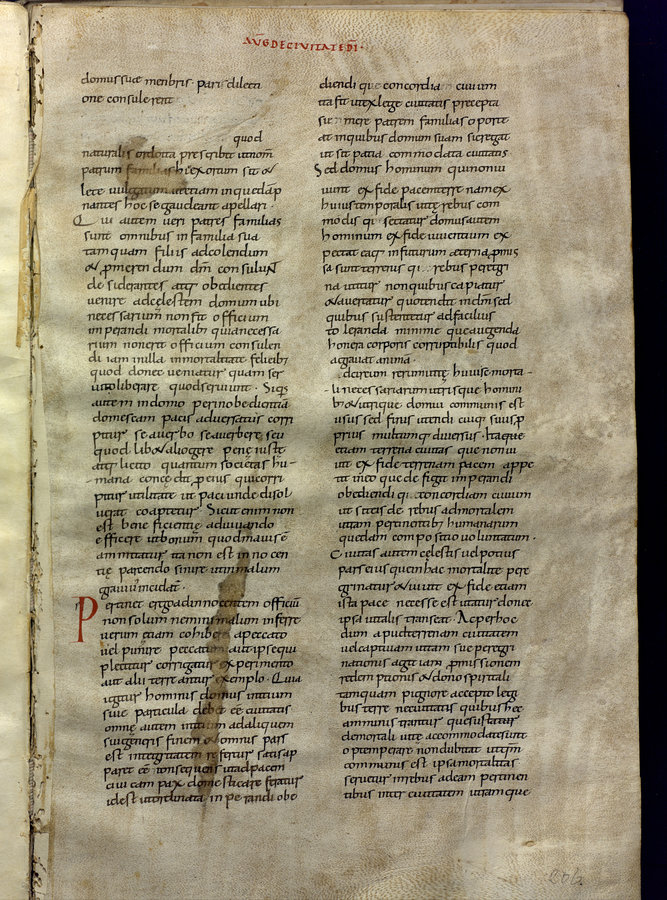 AUG DE CIUITATE DĪ.
domus suae menbris. paris dilecti
one consulerent
quod
naturalis ordo ita prescribit ut nom̄
patrum familias hi exortum sit &
lete uulgatum ut etiam inique dn̄
nantes hoc se gaudeant apellari.
Qui autem ueri patres familias
sunt omnibus in familia sua
tamquam filiis ad colendum
& promerendum dm̄ consulunt
desiderantes atq; obedientes
uenire ad celestem domum ubi
necessarium non sit officium
imperandi mortalib; quia necessa
rium non erit officium consulen
di iam in illa inmortalitate felicib;
quod donec ueniatur quam ser
uos tolerare quod seruiunt. Siquis
autem in domo per inobedientia
domesticam paci aduersatur corri
pitur seu uerbo seu uerbere seu
quolib& alio genere pene iuste
atq; licito quantum societas hu
mana concedit pro eius qui corri
pitur utilitate ut paci unde disol
uerat coaptetur. Sicut enim non
est beneficientię adiuuando
efficere ut bonum quod maius ē
ammittatur ita non est innocen
tię parcendo sinire ut in malum
grauius incidat.
Pertinet ergo ad innocentem officiū
non solum nemini malum inferre
uerum etiam cohibere a peccato
uel punire peccatum aut ipse qui
plectitur corrigatur experimento
aut alii terreantur exemplo. Quia
igitur hominis domus initium
siue particula debet eē ciuitatis
omne autem initium ad aliquem
sui generis finem & omnis pars
est integritatem refertur satis ap
paret eē consequens ut ad pacem
ciuicam pax domesticae feratur
id est ut ordinata imperandi obe
diendi que concordia ciuium
ita fit ut ex lege ciuitatis precepta
sumere patrem familias oporte
at in quibus domum suam sic regat
ut sit paci accommodata ciuitatis
Sed domus hominum qui non ui
uunt ex fide pacem terrenam ex
huius temporalis uitę rebus com
modis q; sectatur domus autem
hominum ex fide uiuentium ex
pectat eaq; in futurum aeterna promis
sa sunt terrenis q; rebus peregri
na utitur non quibus capiatur
& auertatur quo tendit in dm̄ sed
quibus sustentetur ad facilius
toleranda minime que augenda
honera corporis corruptibilis quod
agrauat animam.
dcircum rerum uitę huius morta
li necessariarum utrisque homini
b; & utrique domui communis est
usus sed finis utendi cuiq; suus p
prius multumq; diuersus. Ita que
etiam terrena ciuitas que non ui
uit ex fide terrenam pacem appe
tit in eo que defigit imperandi
obediendi q; concordiam ciuium
ut sit eis de rebus ad mortalem
uitam pertinentib; humanarum
quedam compositio uoluntatum.
Ciuitas autem celestis uel potius
pars eius que in hac mortalitate pere
grinatur & uiuit ex fide etiam
ista pace necesse est utatur donec
ipsa mortalitas transeat. Ac per hoc
dum apud terrenam ciuitatem
uel captiuam uitam sue peregri
nationis agit iam promissionem
redemptionis & dono spiritali
tamquam pignore accepto legi
bus terrenę ciuitatis quibus hęc
amministrantur que sustentandę
mortali uite accommodate sunt
optemperare non dubitat ut qm̄
communis est ipsa mortalitas
seruetur in rebus ad eam pertinen
tibus inter ciuitatem utramque
206.